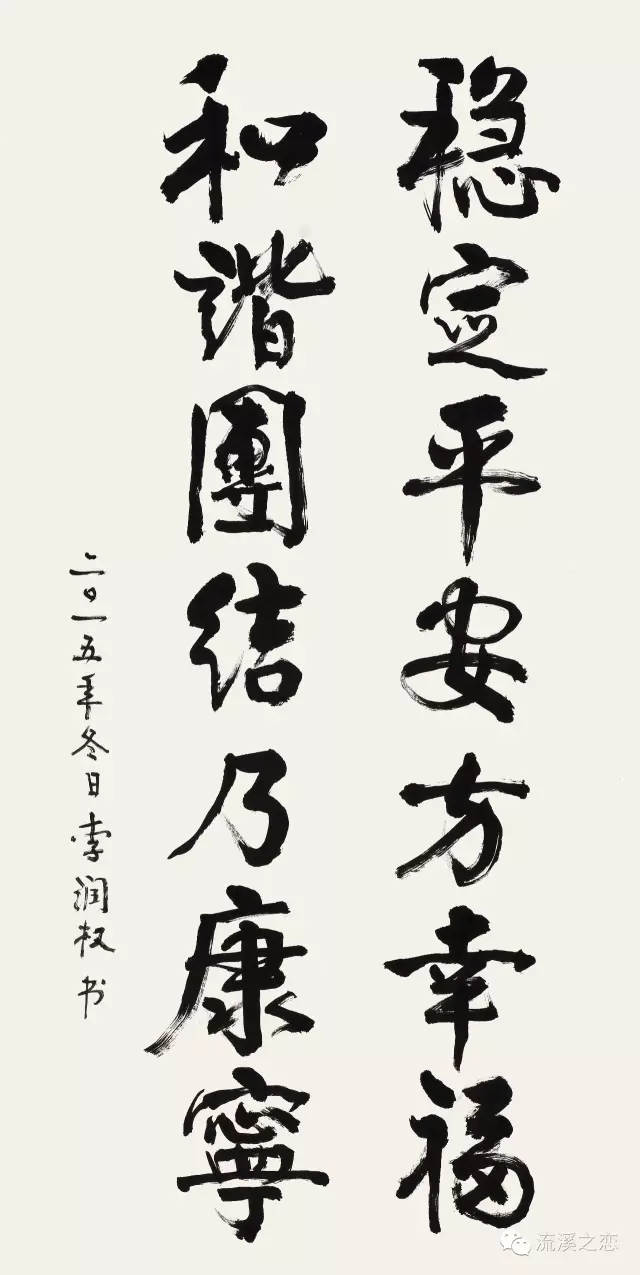 稳定平安方幸福
和谐團结乃康寧
二〇一五年冬日李润权书
流溪之恋